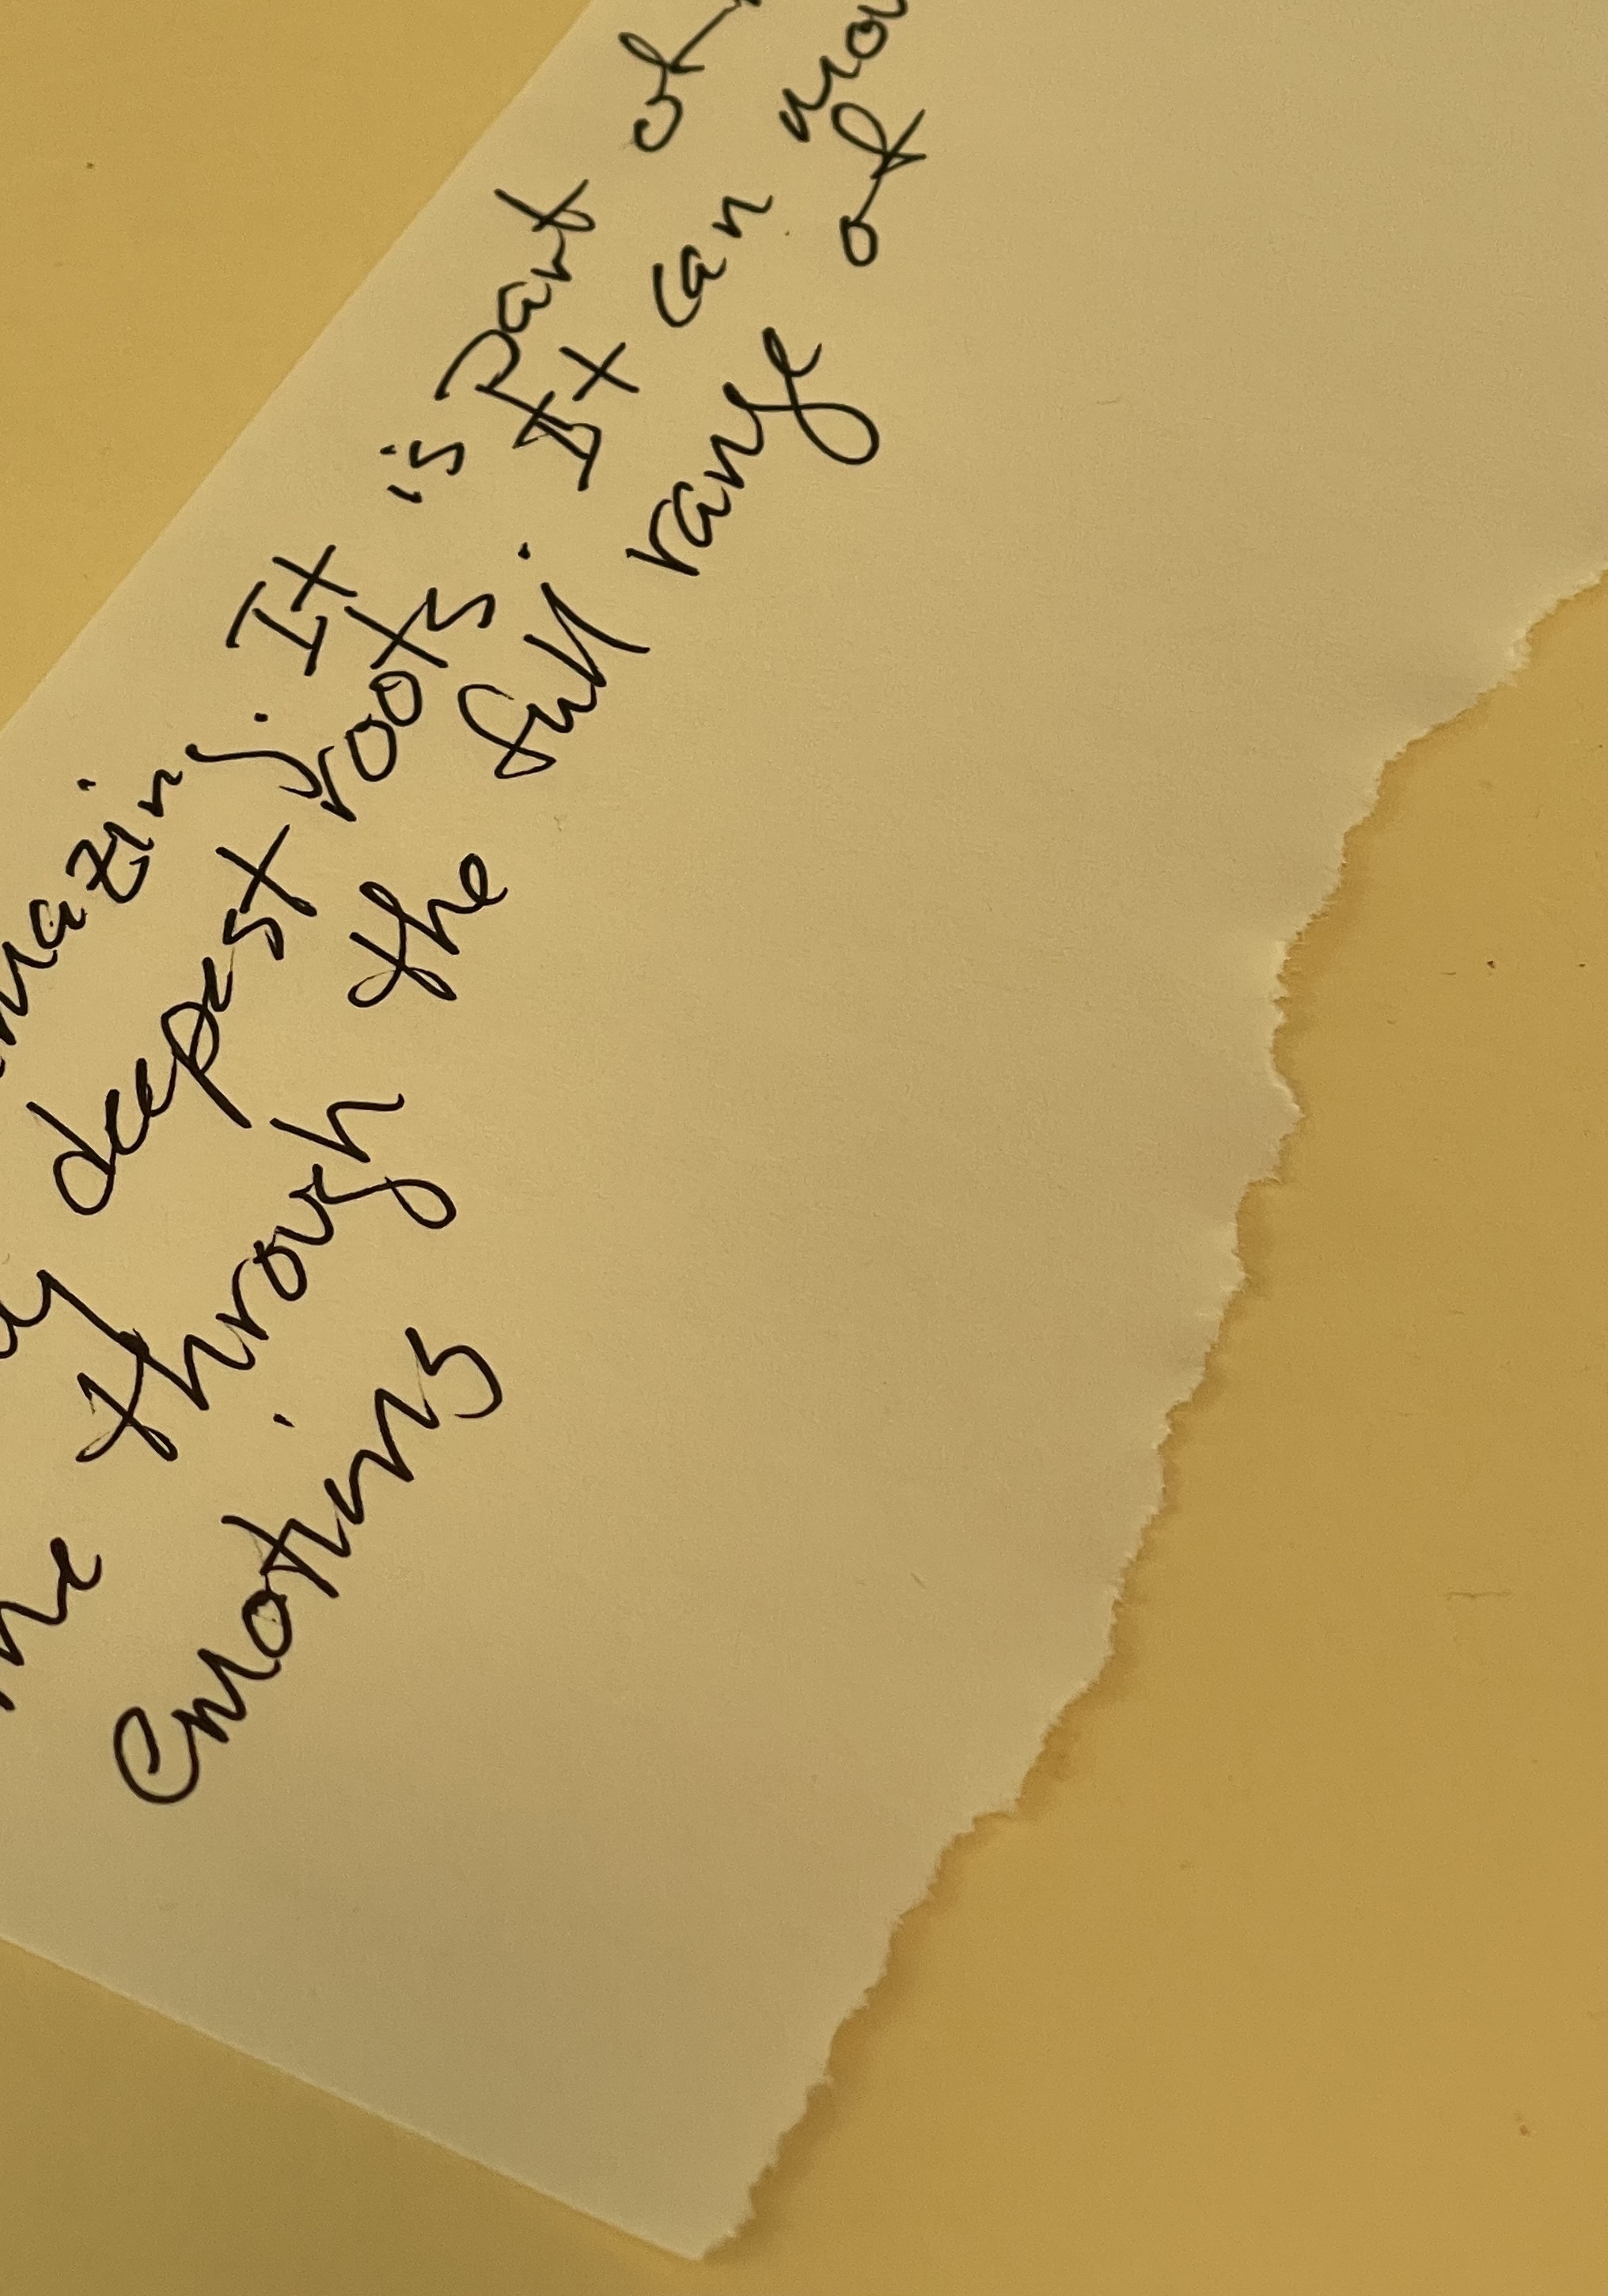 mazing. It is part of
deepest roots. It can mov
through the full range of
Emotions